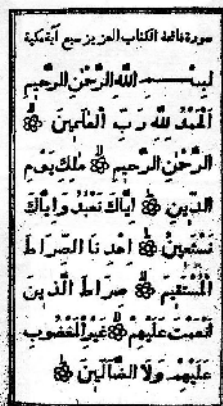 سورة فاتحة الكتاب العزيز سبع آية مكية
بسم الله الرحمن الرحيم
اَلْحَمْدُ لِلّٰهِ رَبِّ الْعٰلَمِينَ
الرَّحْمٰنِ الرَّحِيمِ مٰلِكِ يَوْمِ
الدِّينِ اِيَّاكَ نَعْبُدُ وَاِيَّاكَ
نَسْتَعِينُ اِهْدِنَا الصِّرَاطَ
الْمُسْتَقِيمَ صِرَاطَ الَّذِينَ
اَنْعَمْتَ عَلَيْهِمْ غَيْرِ الْمَغْضُوبِ
عَلَيْهِمْ وَلَا الضَّالِّينَ